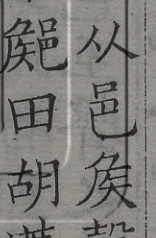 从邑矦
鄇田胡